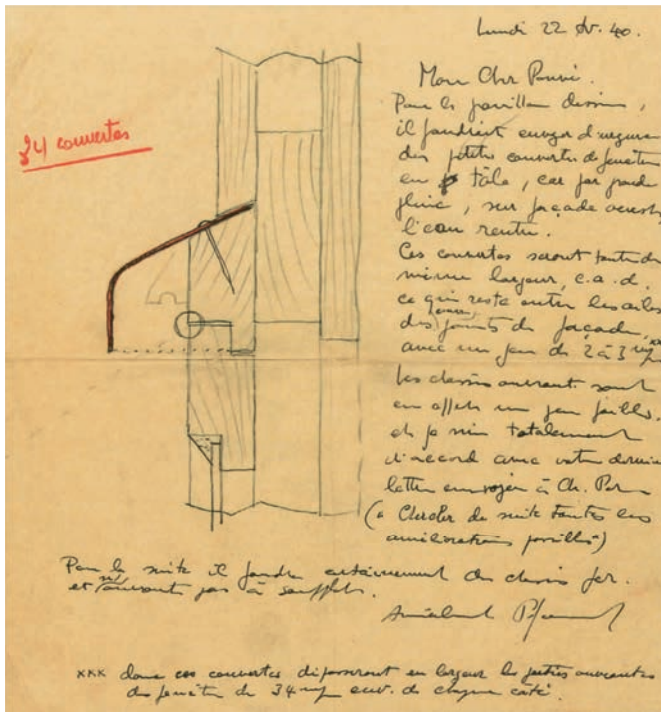 Lundi 22 . 40.
Mon Cher
Pour le pavillon dessins,
il faudrait envoyer d'urgence
des petites couvertes de fenêtre
en tôle, car par grande
pluie, sur façade ouest,
l'eau rentre.
Ces couvertes seront toutes de
même largeur, c.a.d.
ce qui reste entre les ailes
des joints de façade, xxx
avec un jeu de 2 à 3 m/m
Les chassis ouvrant sont
en effet un peu faibles,
et je suis totalement
d'accord avec votre dernière
lettre envoyée à Ch.
(a Chercher de suite toutes les
améliorations possibles)
34 couvertes
Pour la suite il faudra certainement des chassis fer.
et ouvrants pas à soufflets.
Amicalement
xxx donc ces couvertes dépasseront en largeur les parties ouvrantes
des fenêtres de 34 m/m env. de chaque coté.